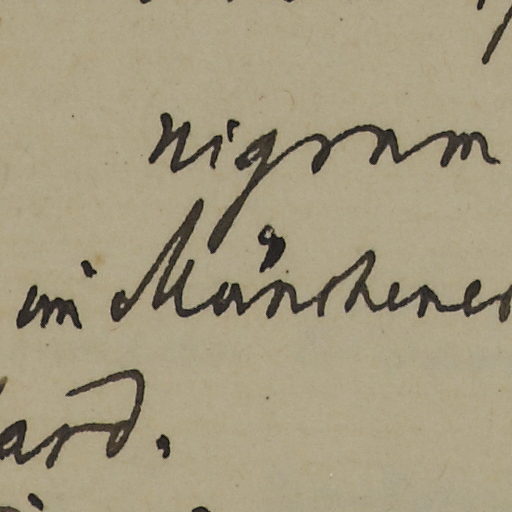 nigrum
im Münchener
ard.